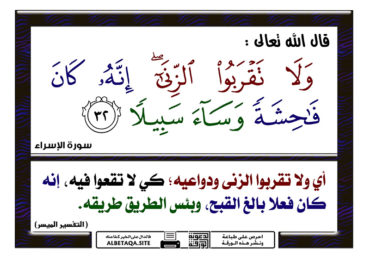 قال الله تعالى :
وَلَا تَقْرَبُوا۟ ٱلزِّنَىٰٓ ۖ إِنَّهُۥ كَانَ
فَٰحِشَةً وَسَآءَ سَبِيلًا ٣٢
سورة الإسراء
أي ولا تقربوا الزنى ودواعيه؛ كي لا تقعوا فيه، إنه
كان فعلا بالغ القبح، وبئس الطريق طريقه.
(التفسير الميسر)
احرص على طباعة
ونشر هذه الورقة
فالدال على الخير كفاعله
ALBETAQA.SITE